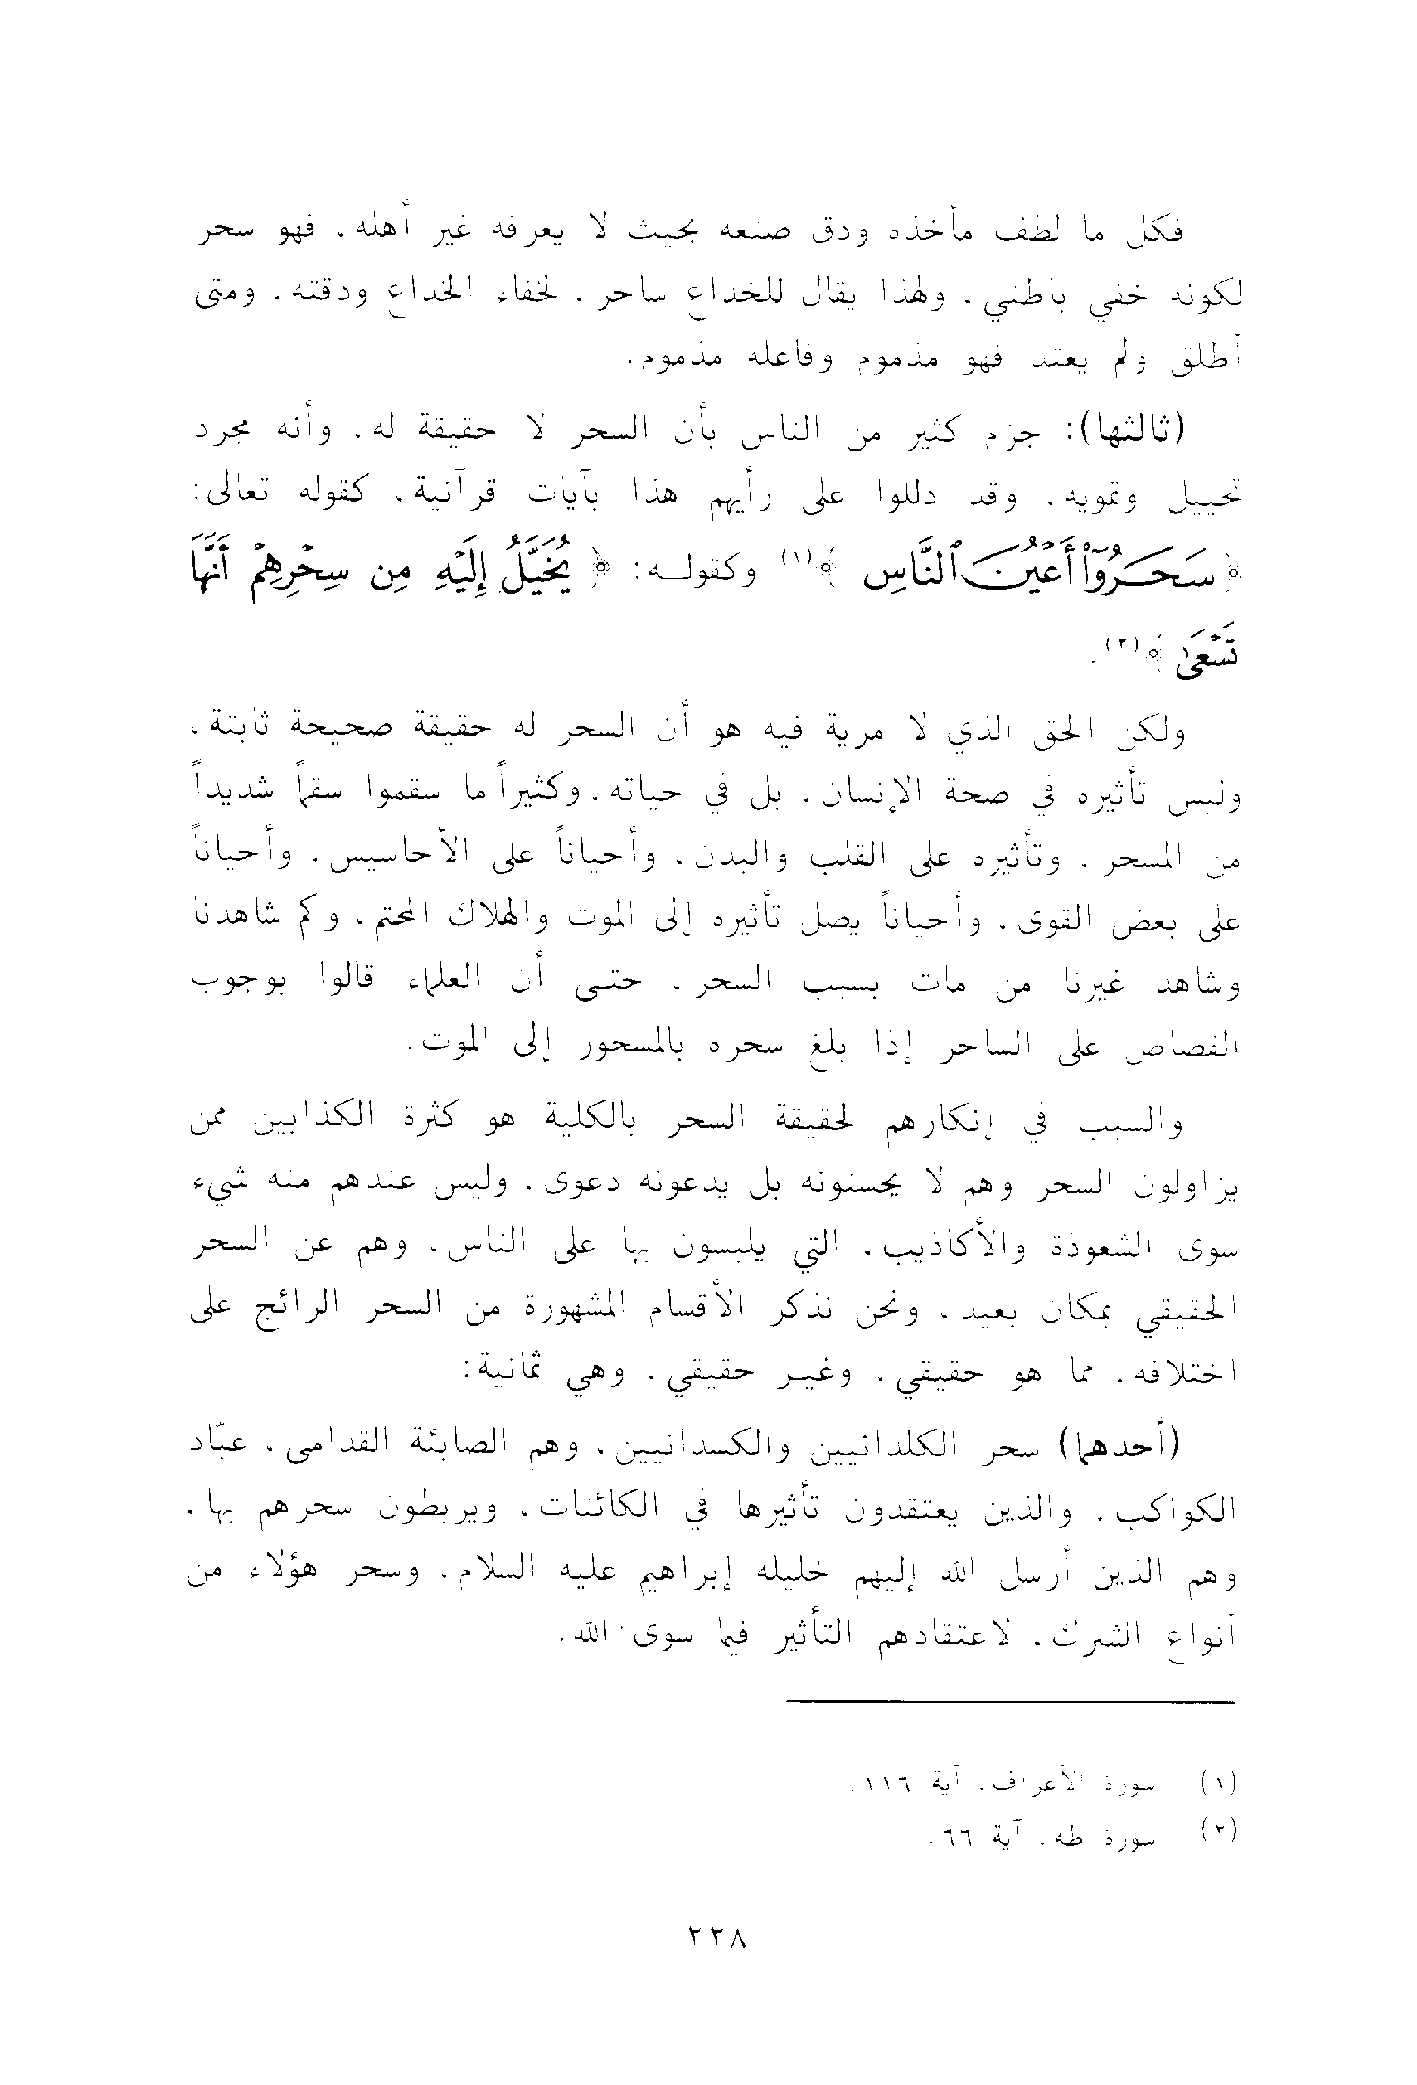 فكل ما لطف مأخذه ودق صنعه بحيث لا يعرفه غير أهله، فهو سحر
لكونه خفي باطني، ولهذا يقال للخداع ساحر، لخفاء الخداع ودقته، ومتى
أطلق ولم يعتد فهو مذموم وفاعله مذموم.
(ثالثها): جزم كثير من الناس بأن السحر لا حقيقة له، وأنه مجرد
تخييل وتمويه، وقد دللوا على رأيهم هذا بآيات قرآنية، كقوله تعالى:
﴿سَحَرُوٓاْ أَعْيُنَ ٱلنَّاسِ﴾(١) وكقولـه: ﴿يُخَيَّلُ إِلَيْهِ مِن سِحْرِهِمْ أَنَّهَا
تَسْعَىٰ﴾(٢).
ولكن الحق الذي لا مرية فيه هو أن السحر له حقيقة صحيحة ثابتة،
وليس تأثيره في صحة الإنسان، بل في حياته، وكثيراً ما سقموا سقماً شديداً
من المسحر، وتأثيره على القلب والبدن، وأحياناً على الأحاسيس، وأحياناً
على بعض القوى، وأحياناً يصل تأثيره إلى الموت والهلاك المحتم، وكم شاهدنا
وشاهد غيرنا من مات بسبب السحر، حتـى أن العلماء قالوا بوجوب
القصاص على الساحر إذا بلغ سحره بالمسحور إلى الموت.
والسبب في إنكارهم لحقيقة السحر بالكلية هو كثرة الكذابين ممن
يزاولون السحر وهم لا يحسنونه بل يدعونه دعوى، وليس عندهم منه شيء
سوى الشعوذة والأكاذيب، التي يلبسون بها على الناس، وهم عن السحر
الحقيقي بمكان بعيد، ونحن نذكر الأقسام المشهورة من السحر الرائج على
اختلافه، مما هو حقيقي، وغيـر حقيقي، وهي ثمانية:
(أحدهما) سحر الكلدانيين والكسدانيين، وهم الصابئة القدامى، عبّاد
الكواكب، والذين يعتقدون تأثيرها في الكائنات، ويربطون سحرهم بها،
وهم الذين أرسل الله إليهم خليله إبراهيم عليه السلام، وسحر هؤلاء من
أنواع الشرك، لاعتقادهم التأثير فيما سوى الله.
(١) سورة الأعراف، آية ١١٦.
(٢) سورة طه، آية ٦٦.
٢٢٨